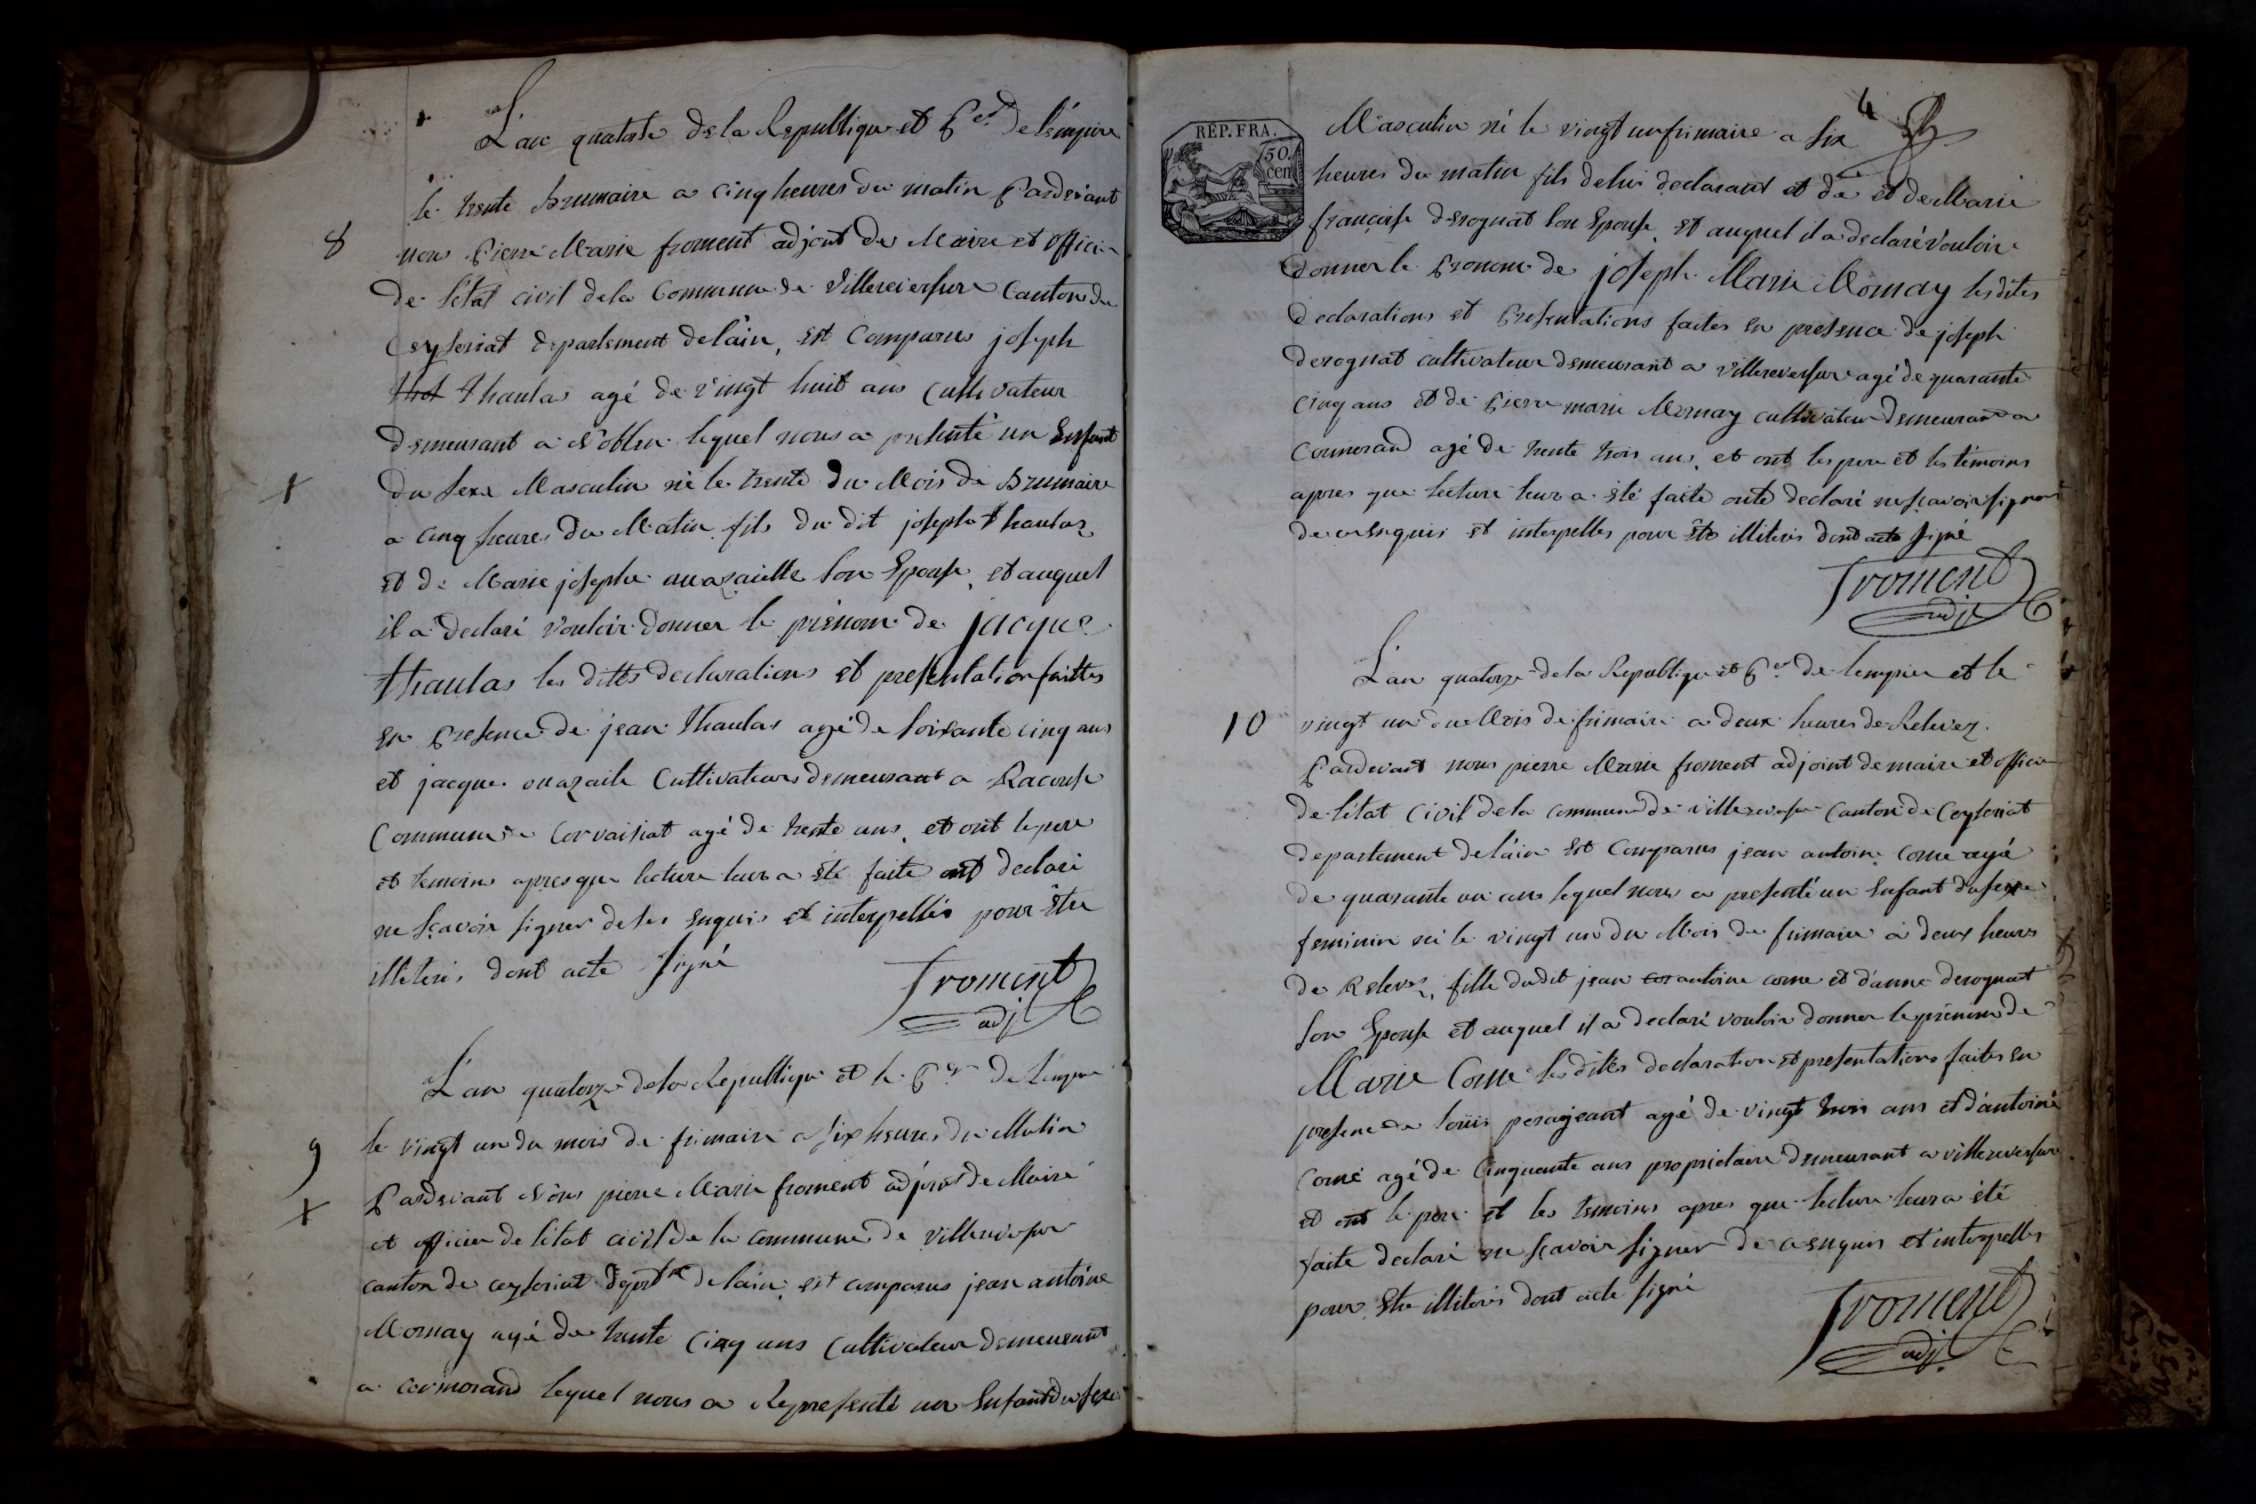 L'an quatorze de la Republique et P.er de l'empire
le trente Brumaire a cinq heures du matin Pardevant
8
nous Pierre Marie froment adjoint du Maire et officier
de letat civil de la Commune de Villereversure Canton de
Ceyseriat departement de lain, est Comparus joseph
Thaulas agé de vingt huit ans Cultivateur
demeurant a Noblen lequel nous a presenté un Enfant
du sexe Masculin né le trente du Mois de Brumaire
a cinq heures du Matin fils du dit joseph Thaulas
et de Marie josephe son Epouse, et auquel
il a declaré vouloir donner le prénom de jacque
Thaulas les dittes declarations et presentation faittes
en Presence de jean Thaulas agé de soixante cinq ans
et jacque Cultivateurs demeurant a Racouse
Commune de Corvaisiat agé de trente ans, et ont le pere
et temoins apres que lecture leur a été faite ont declaré
ne sçavoir signer de les enquis et interpellés pour être
illiterés dont acte signé
froment
adj
L'an quatorze de la Republique et le P.er de l'empire
9
le vingt un du mois de frimaire a six heures du Matin
Pardevant Nous pierre Marie froment adjoint de Maire
et officier de letat civil de la commune de villereversure
canton de ceyseriat depart de lain, est comparus jean antoine
Mornay agé de trente Cinq ans Cultivateur demeurant
a cormorand lequel nous a Representé un Enfant du sexe
4
REP. FRA.
50.
cen
Masculin né le vingt un frimaire a six
heures du matin fils de lui declarant et de et de Marie
françoise derognat son Epouse, et auquel il a declaré vouloir
donner le Pronom de joseph Marie Mornay les dites
declarations et Presentations faites en presence de joseph
derognat cultivateur demeurant a villereversure agé de quarante
cinq ans et de Pierre marie Mornay cultivateur demeurant a
Cormorand agé de trente trois ans, et ont les pere et les témoins
apres que lecture leur a été faite ont declaré ne sçavoir signer
de ce enquis et interpellés pour être illiterés dont acte signé
froment
adj
L'an quatorze de la Republique et P.er de lempire et le
10
vingt un du Mois de frimaire a deux heures de Relevez
Pardevant nous pierre Marie froment adjoint de maire et officier
de létat Civil de la commune de villereversure Canton de Ceyseriat
departement de láin est Comparus jean antoine come agé
de quarante un ans lequel nous a presenté un Enfant du sexe
feminin né le vingt un du Mois de frimaire a deux heures
de Relevez, fille dudit jean antoine come et d'anne derognat
son Epouse et auquel il a declaré vouloir donner le prénom de
Marie Come les dittes declaration et presentations faites en
presence de loüis perageant agé de vingt trois ans et d'antoine
Come agé de Cinquante ans proprietaire demeurant a villereversure
et ont le pere et les temoins apres que lecture leur a été
faite declaré ne sçavoir signer de ce enquis et interpellés
pour être illiterés dont acte signé
froment
adj.